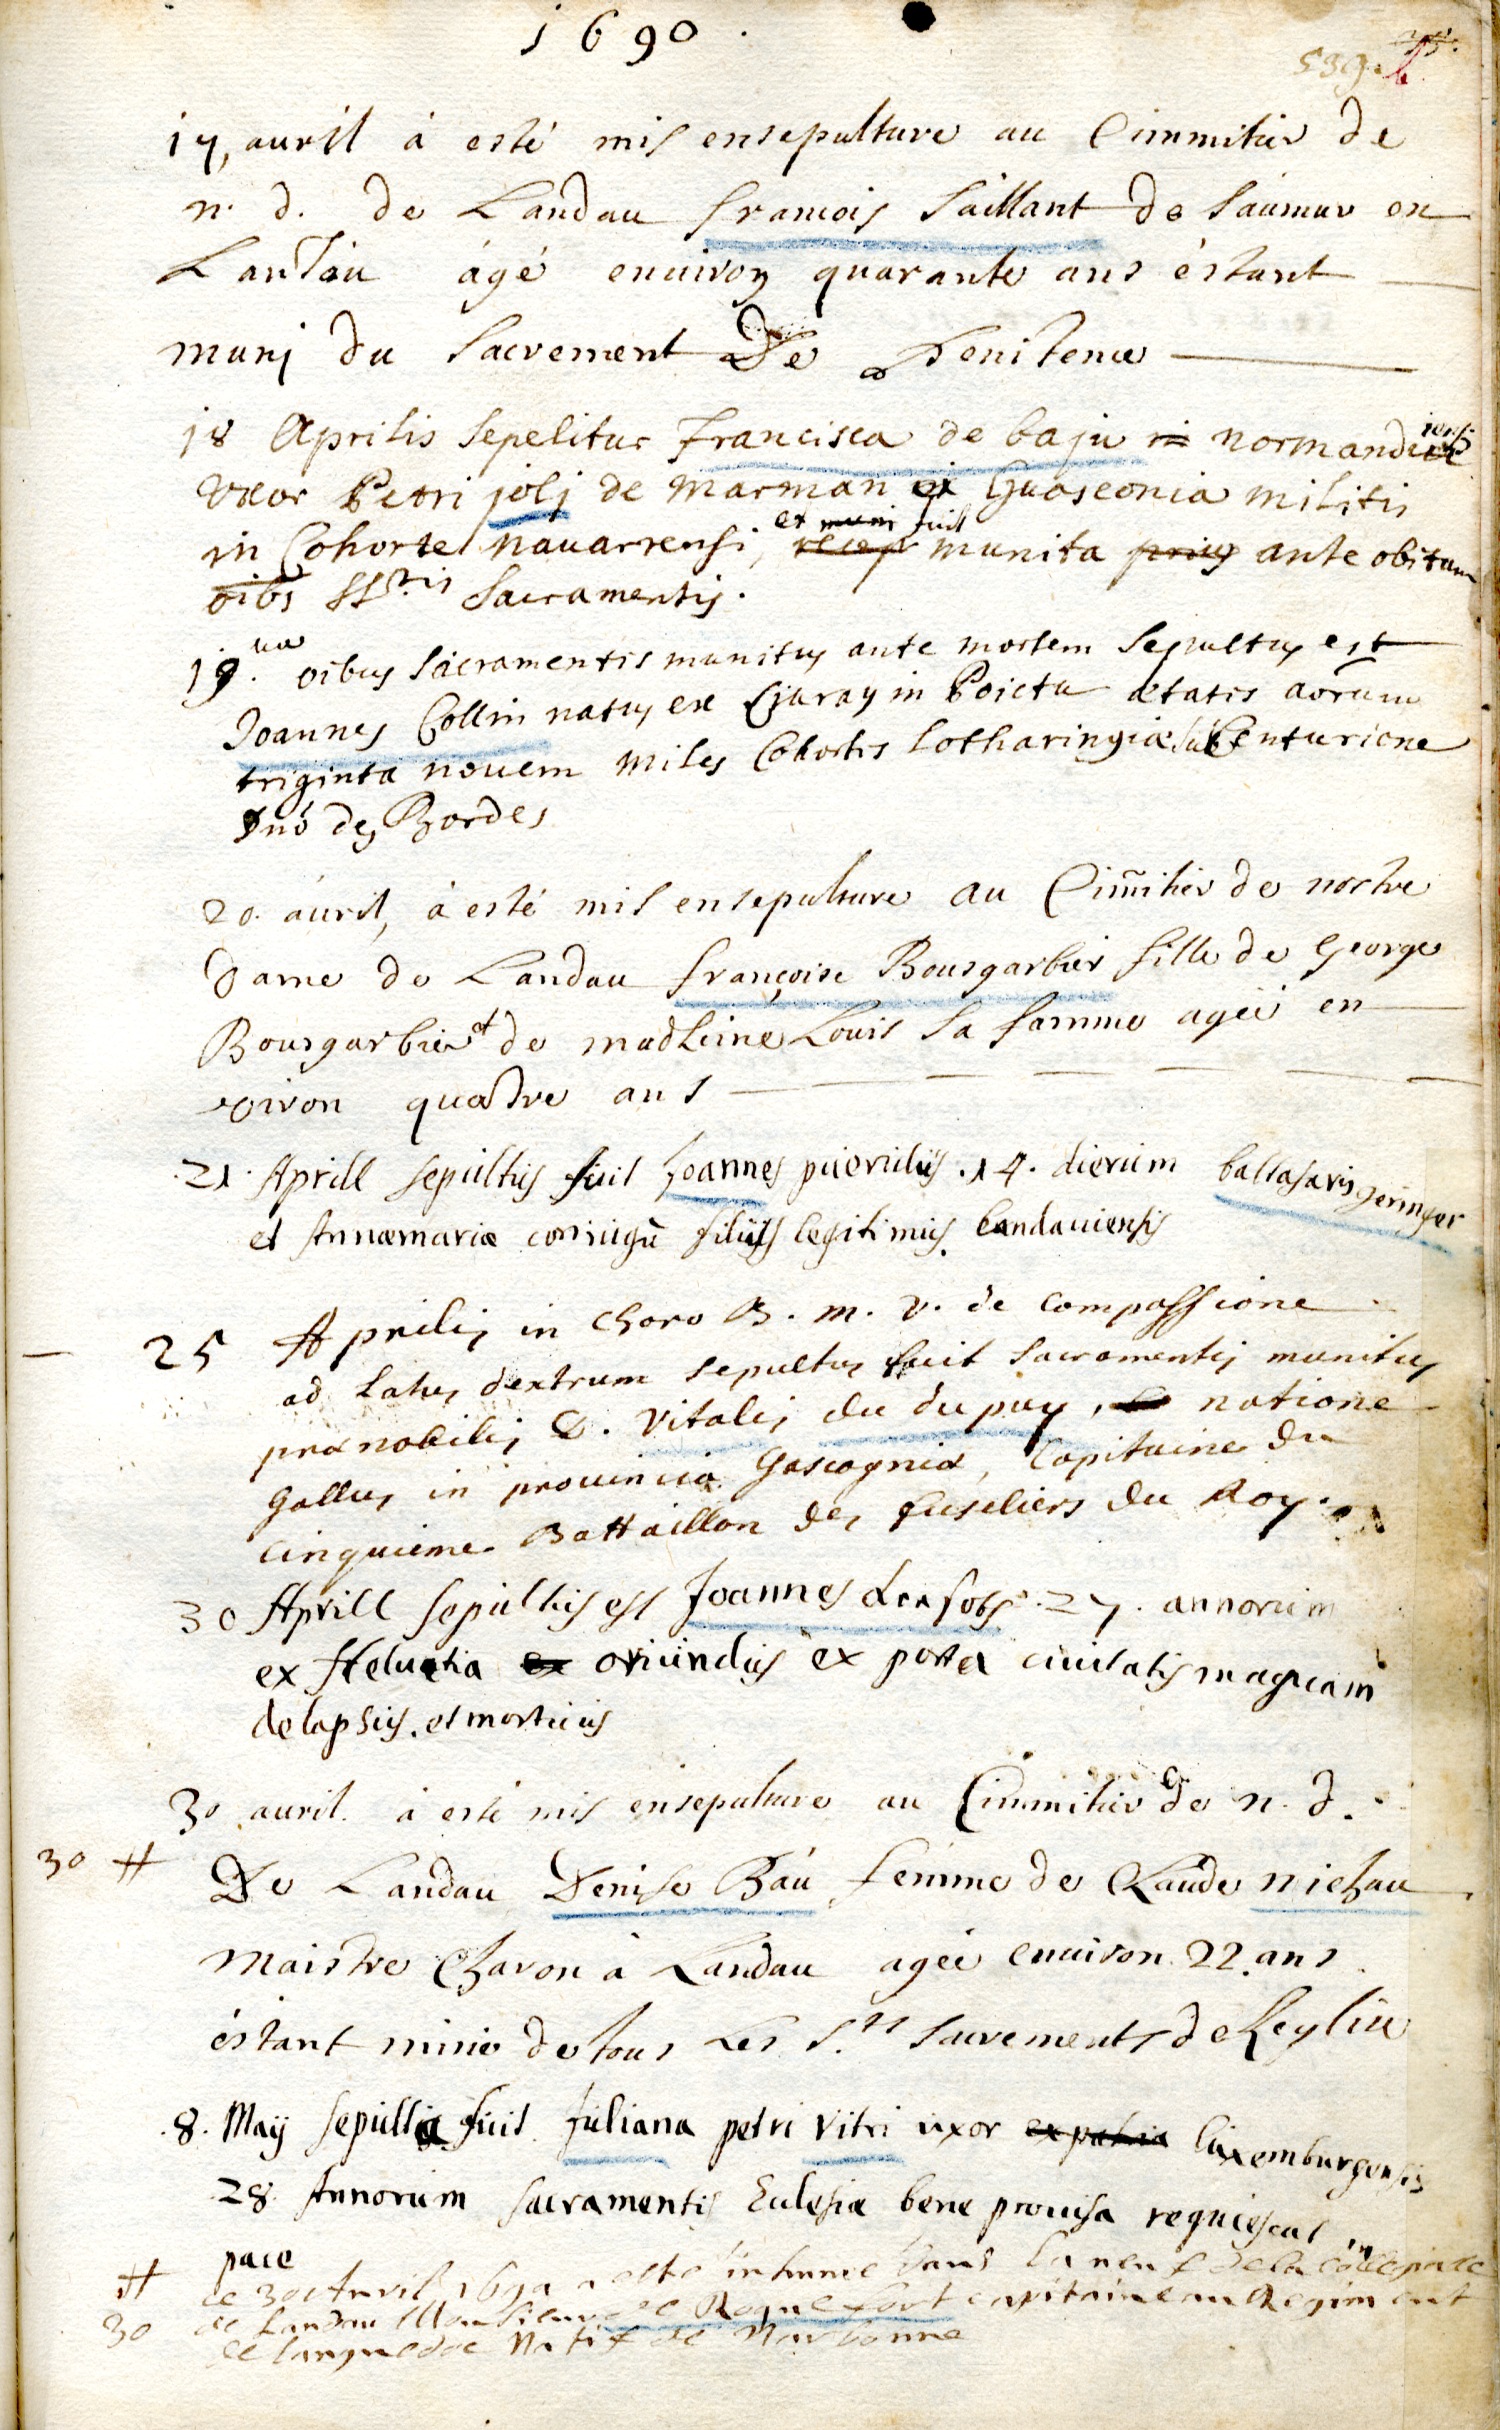 1690.
539. b
17, auril à esté mis ensepulture au Cimmitier de
n. d. de Landau francois Saillant de Saumur en
Lanjau ágé enuiron quarante ans éstant
munj du Sacrement De penitence
18 Aprilis Sepelitur Francisca de baju normandi
vxor Petri jolj de marman ex Guasconia militis
in Cohorte nauarrensi, et munita ante obitum
oibs SS.tis Sacramentis.
19.na oibus Sacramentis munitus ante mortem Sepultus est
Joannes Collin natus ex Ciuray in Poictu ætatis aorum
triginta nouem miles Cohortis lotharingiæ sub Centurione
Dno des Bordes
20. áuril, à esté mis ensepulture au Cim̃itier de nostre
Dame de Landau françoise Bourgarbier fille de George
Bourgarbier et de madleine Louis sa famme ageé en
viron quatre ans
.21. Aprill sepultus fuit Joannes puerulus .14. dierum baltasaris geringer
et Annæmariæ coniugũ filius legitimus landauiensis
25 Aprilis in choro B. m. v. de compassione
ad latus dextrum sepultus fuit sacramentis munitus
prænobilis D. vitalis du du puy, natione
gallus in prouincia gascogniæ, Capitaine du
cinquieme Battaillon des fuseliers du Roy.
30 Aprill sepultus est Joannes 27. annorum
ex Heluetia ex oriundus ex porta ciuitatis
delapsus. et mortuus
30 auril. à esté mis ensepulture au Cimmitier de n. d.
30 #
De Landau Denise Báu femme de Claude michau
maistre Charon à Landau ageé enuiron 22. ans
éstant munie de tous Les S.ts sacrements de Leglise
.8. Maÿ sepulta fuit Juliana petri Vitri uxor ex patria luxemburgensis
.28. Annorum sacramentis Eclesiæ bene prouisa requiescat in
pace
# le 30 Avril 1690 a esté inhumé dans la nef de la collegiale
30 de Landau Monsieur de Roquefort capitaine au Regiment
de languedoc Natif de Narbonne